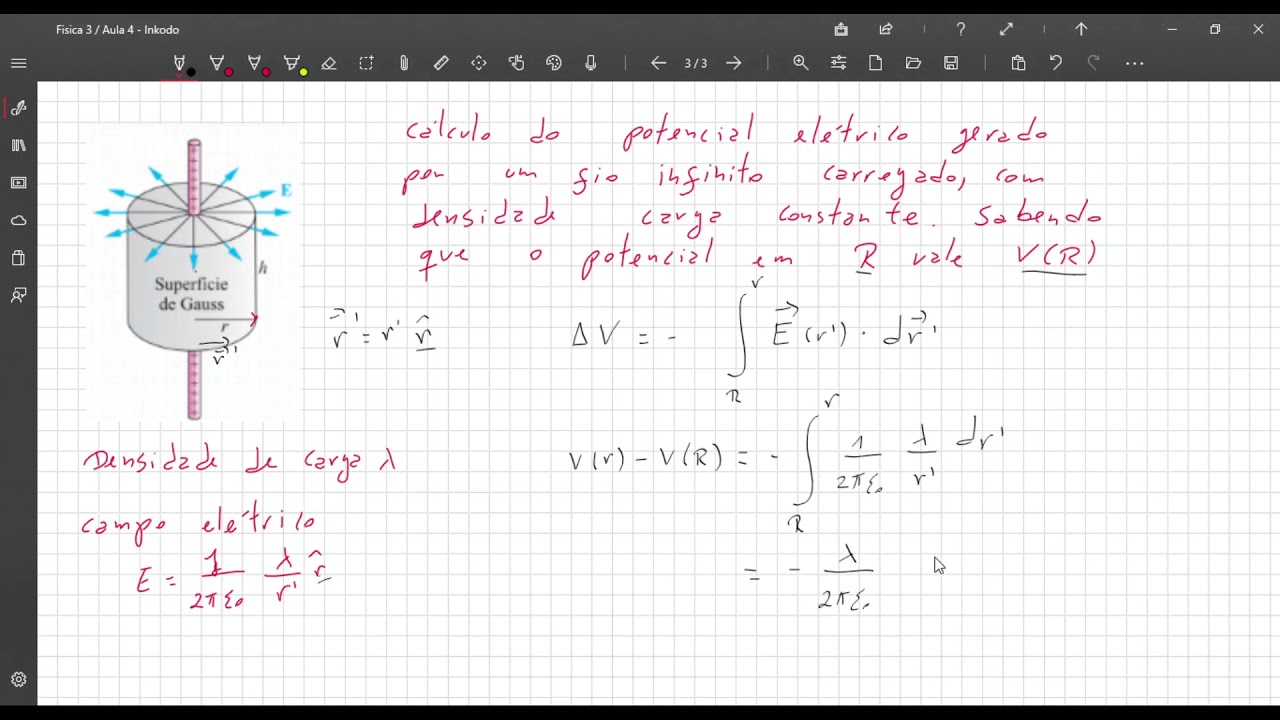 Fisica 3 / Aula 4 - Inkodo
3 / 3
cálculo do potencial elétrico gerado
por um fio infinito carregado, com
densidade carga constante. Sabendo
que o potencial em R vale V(R)
E
h
Superfície
de Gauss
r
r⃗'
r⃗' = r' r̂
ΔV = - ∫_R^r E⃗(r') · dr⃗'
V(r) - V(R) = - ∫_R^r 1/(2πε₀) λ/r' dr'
= - λ/(2πε₀)
Densidade de carga λ
campo elétrico
E = 1/(2πε₀) λ/r' r̂